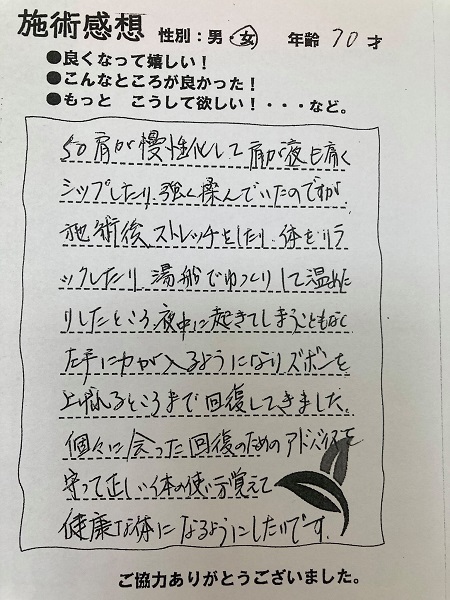 施術感想 性別：男・女 年齢 70 才
●良くなって嬉しい！
●こんなところが良かった！
●もっと こうして欲しい！・・・など。
50肩が慢性化して肩が夜も痛く
シップしたり強く揉んでいたのですが、
施術後、ストレッチをしたり、体をリラ
ックしたり 湯船でゆっくりして温めた
りしたところ、夜中に起きてしまうこともなく
左手に力が入るようになりズボンを
上げれるところまで回復してきました。
個々に会った回復のためのアドバイスを
守って正しい体の使い方覚えて
健康な体になるようにしたいです。
ご協力ありがとうございました。